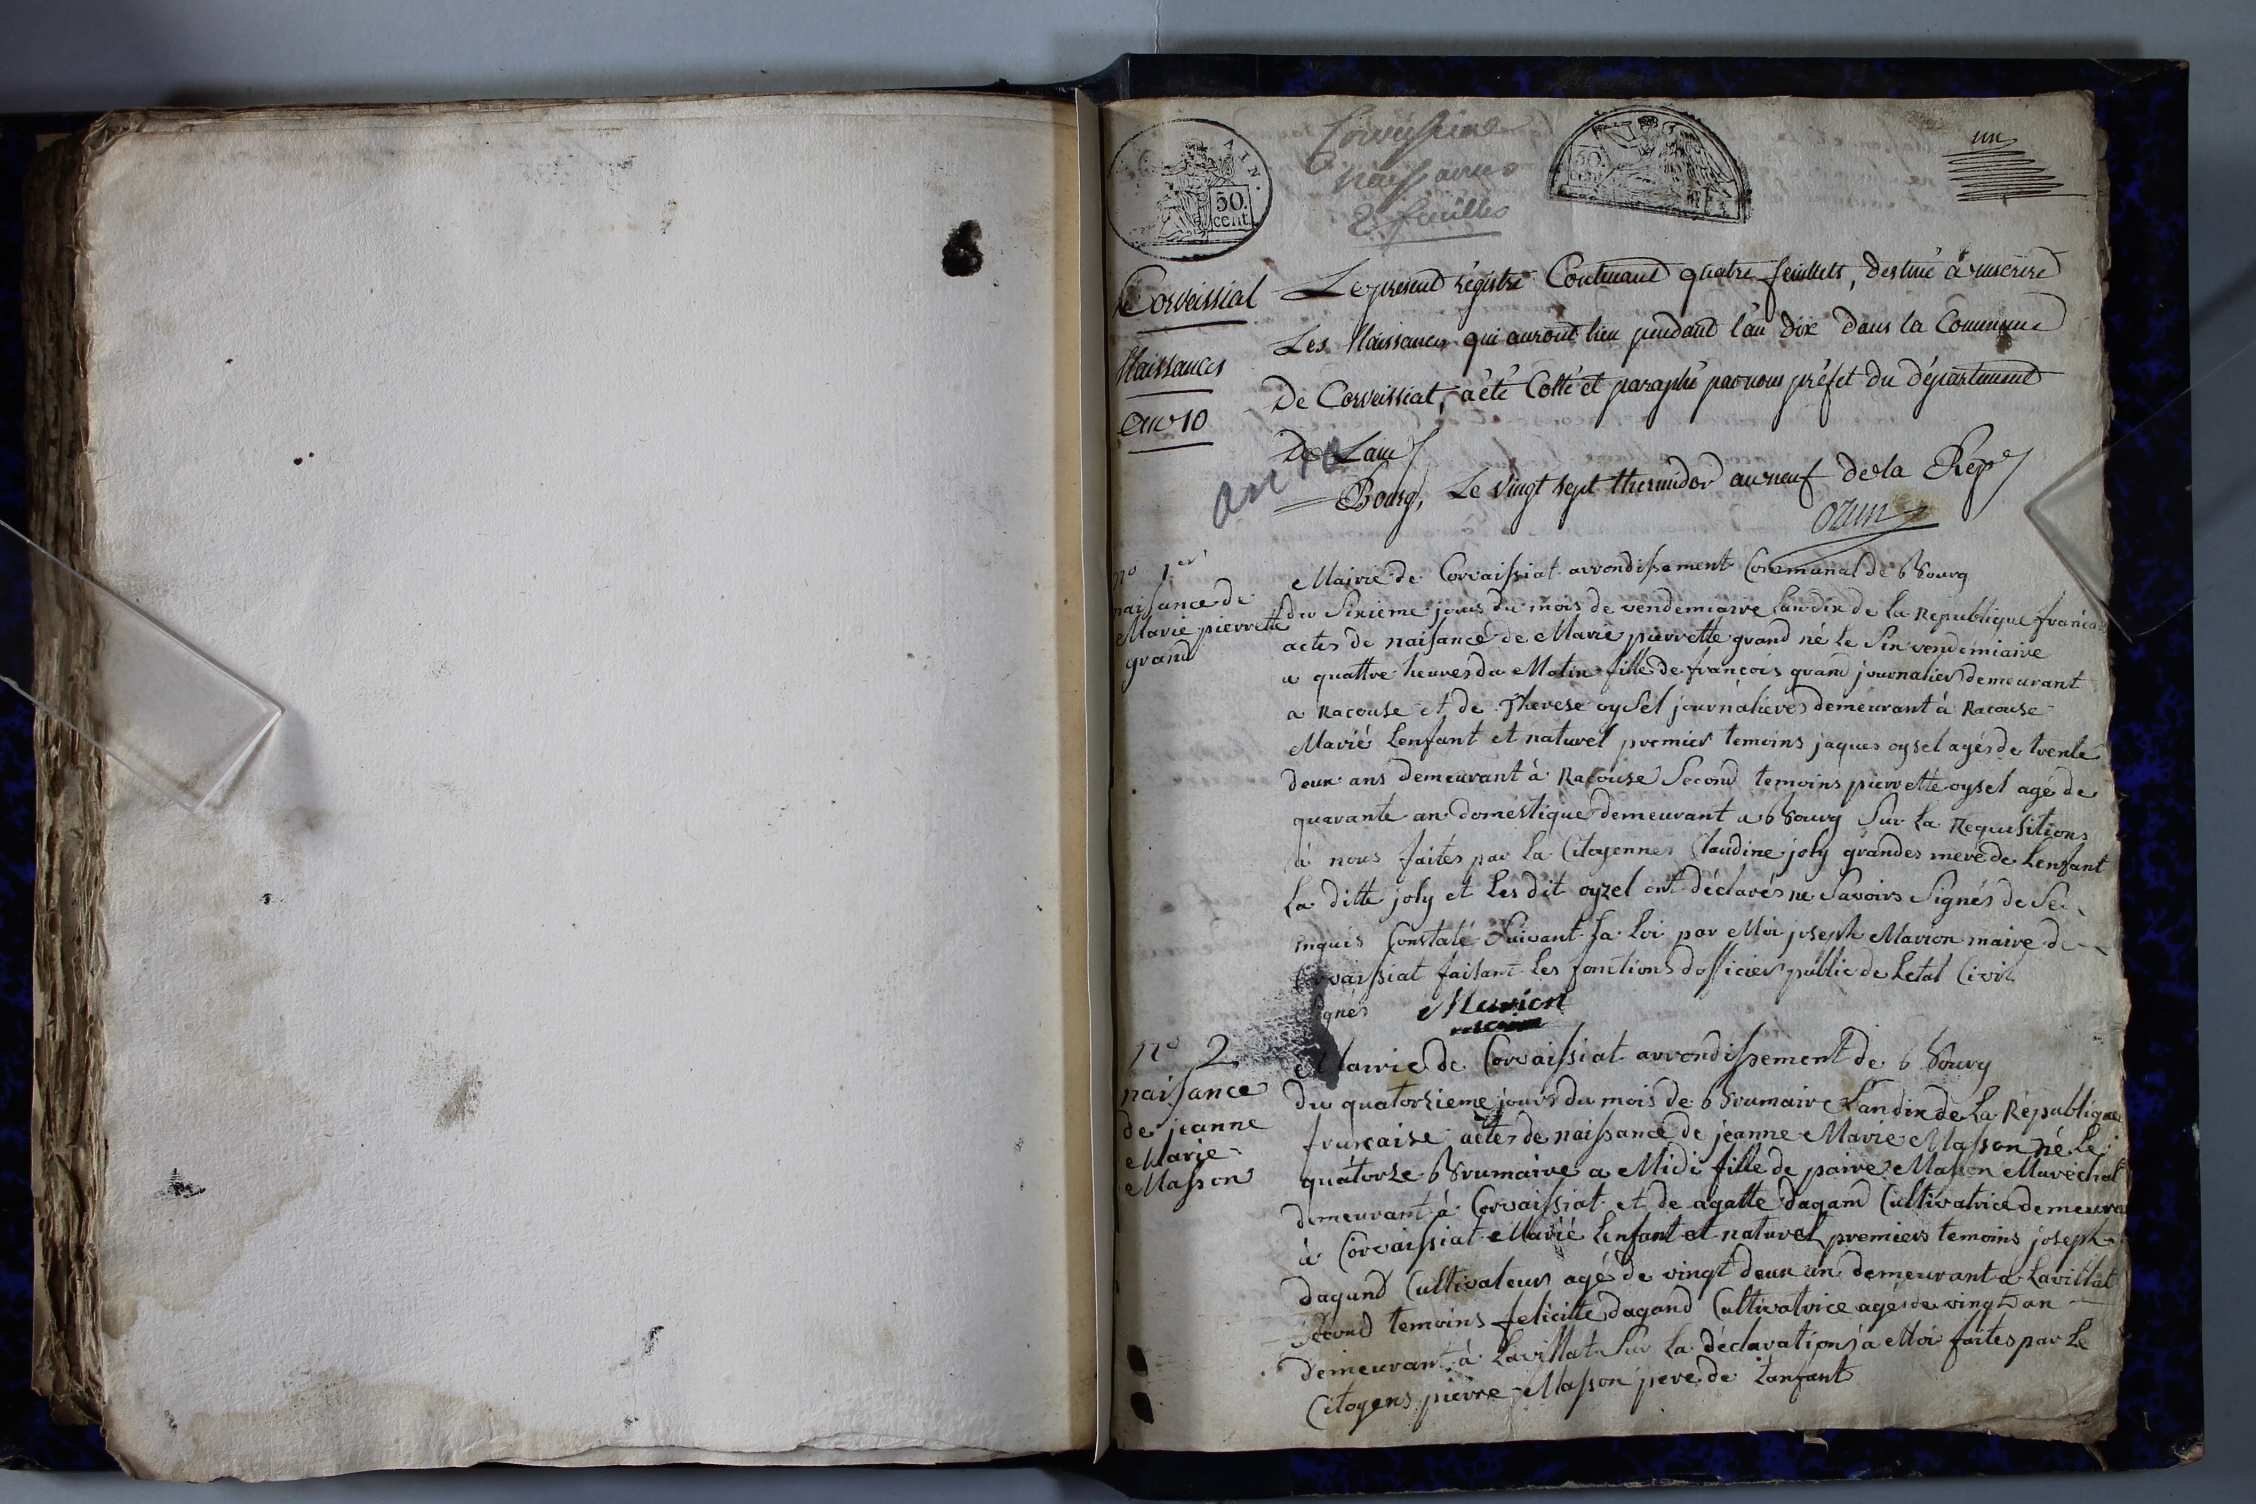 AIN.
50.
cent.
naissances
2 feuilles
50.
un
Corveissiat
Naissances
an 10
Le présent régistre Contenant quatre feuillets, destiné à inscrire
Les Naissances qui auront lieu pendant l'an dix dans la Commune
De Corveissiat, a été Cotté et paraphé par nous préfet du département
De Lain
an 10
Bourg, Le vingt sept thermidor an neuf de la Rep
ozun
no 1er
naissance de
Marie pierrette
grand
Mairie de Corvaissiat arrondissement Communal de bourg
du Sixieme jours du mois de vendemiaire landix de la Republique francais
actes de naissance de Marie pierrette grand né le Six vendemiaire
a quattre heures du Matin fille de francois grand journalier demeurant
a Racouse et de Therese oysel journaliere demeurant à Racouse
Marié Lenfant et naturel premier temoins jaques oysel agés de trente
deux ans demeurant à Racouse Second temoins pierrette oysel agé de
quarante an domestique demeurant a bourg Sur la Requisitions
à nous faites par la Citoyennes Claudine joly grandes mere de Lenfant
La ditte joly et Les dit oyzel ont déclarés ne Savoirs Signés de Se
inquis Constaté Suivant la Loi par Moi joseph Marion maire de
Corvaissiat faisant les fonctions dofficier public de Letat Civil
Signés Marion
no 2
naissance
de jeanne
Marie
Masson
Mairie de Corvaissiat arrondissement de bourg
du quatorsieme jours du mois de brumaire Landix de La République
francaise actes de naissance de jeanne Marie Masson né Le
quatorze brumaire a Midi fille de paire Masson Maréchal
demeurant à Corvaissiat et de agatte dagand Cultivatrice demeura
à Corvaissiat Marié Lenfant et naturel premiers temoins joseph
dagand Cultivateur agé de vingt deux an demeurant a Lavillat
Second temoins felicitte dagand Cultivatrice agés de vingt an
demeurant à Lavillat Sur la déclarations à Moi faites par Le
Citoyens pierre Masson pere de Lanfant